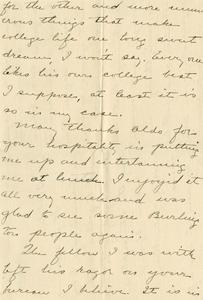 for the other and more num
erous things that make
college life one long sweet
dream, I won't say. Every one
likes his own college best
I suppose, at least it is
so in my case.
Many thanks also for
your hospitality in putting
me up and entertaining
me at lunch. I enjoyed it
all very much and was
glad to see some Burling
ton people again.
The fellow I was with
left his razor on your
bureau I believe. It is in